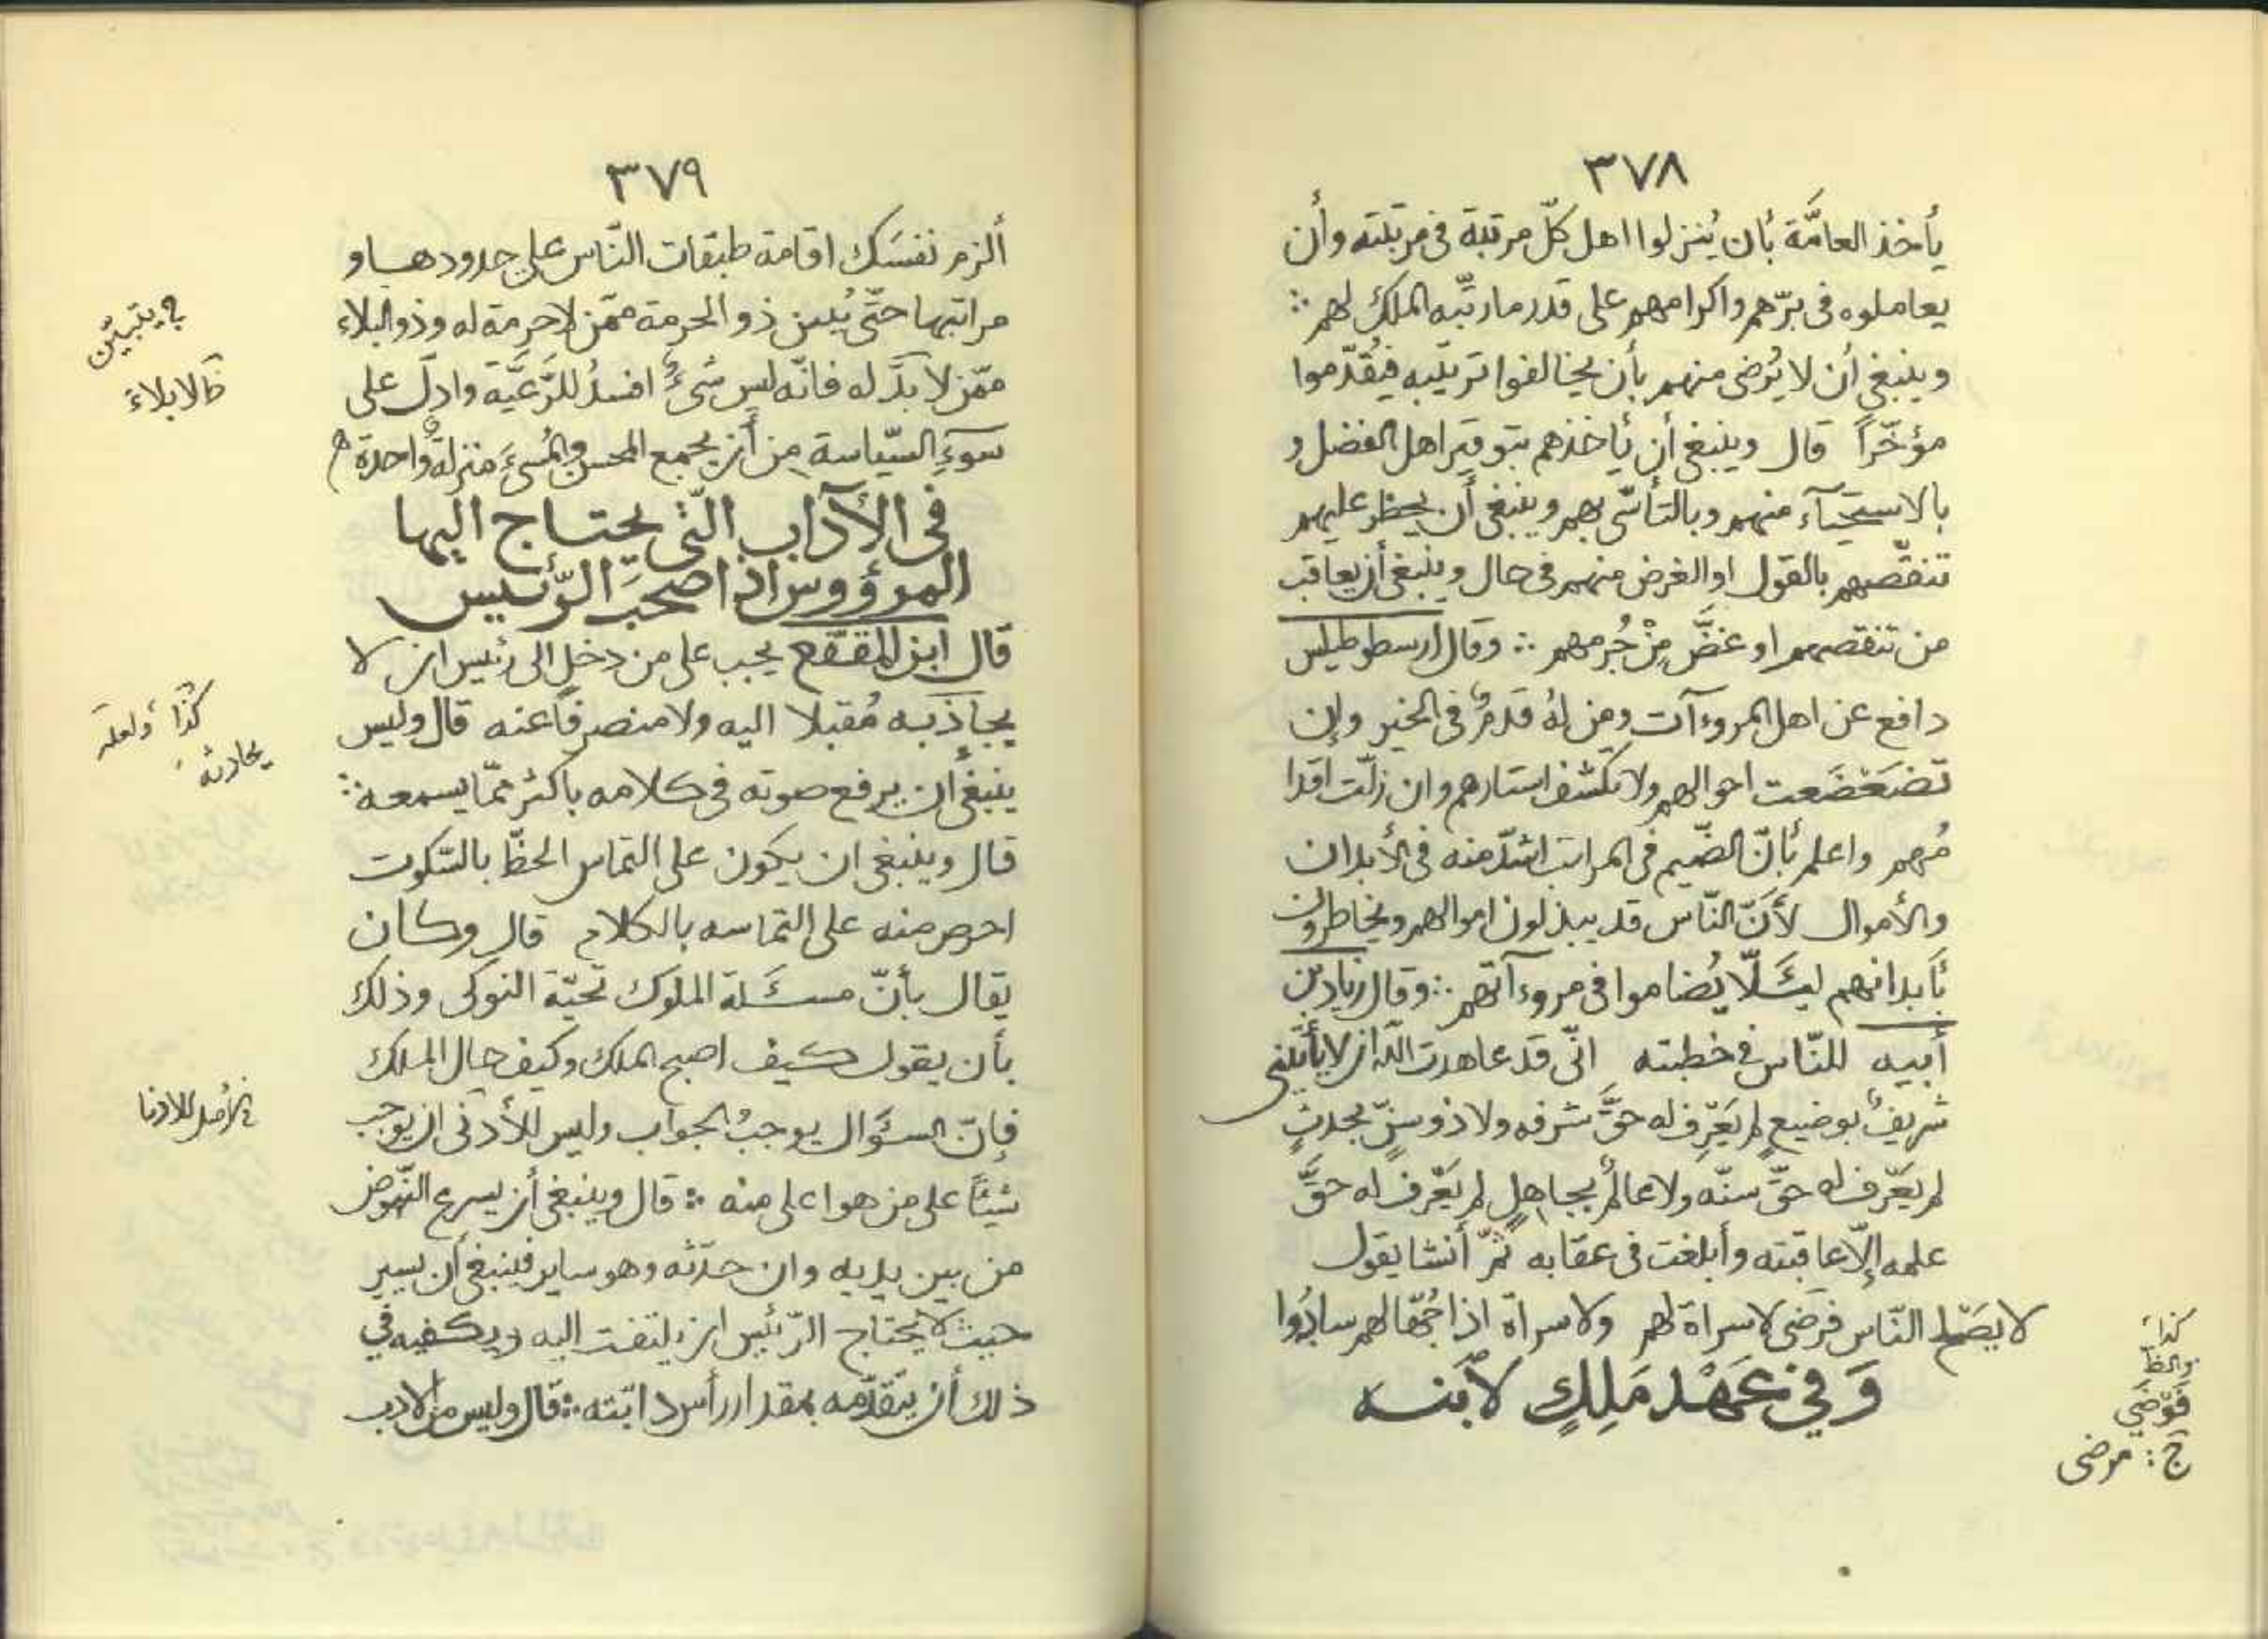 ٣٧٨
يأخذ العامَّة بأن يُنزلوا اهل كلّ مرتبة فى مرتبته وأن
يعاملوه فى برّهم واكرامهم على قدر ما رتّبه الملك لهم ∴
وينبغى أن لا يُرضى منهم بأن يخالفوا ترتيبه فيُقدّموا
مؤخّراً قال وينبغى أن يأخذهم بتوقير اهل الفضل و
بالاستحيآء منهم وبالتأسّى بهم وينبغى أن يحظر عليهم
تنقّصهم بالقول او الغرض منهم فى حال وينبغى أن يعاقب
من تنقصهم او غضَّ مِنْ جُرمهم ∴ وقال ارسطوطيلس
دافع عن اهل المروءآت ومن لهُ قدمٌ فى الخير وإن
تضَعْضَعت احوالهم ولا تكشف استارهم وان زلّت اقدا
مُهم واعلم بأنّ الضّيم فى المراتب اشدّ منه فى الأبدان
والأموال لأنّ النّاس قد يبذلون اموالهم ويخاطرون
بأبدانهم لئَلّا يُضاموا فى مروءآتهم ∴ وقال زياد بن
أبيه للنّاس فى خطبته انّى قد عاهدت اللّه ان لا يأتينى
شريفٌ بوضيعٍ لم يَعْرِف له حقَّ شرفه ولا ذو سنّ بحدثٍ
لم يَعْرف له حقّ سنّه ولا عالمٌ بجاهلٍ لم يَعْرف له حقَّ
علمه إلّا عاقبته وأبلغت فى عقابه ثمّ أنشا يقول
لا يصَلح النّاس فرضى لا سراة لهم ولا سراة اذا جُهّالهم سادُوا
كذا
والظّ
فوضى
ج : مرضى
وَفِي عَهْد مَلِكٍ لاٌبنه
٣٧٩
ألزم نفسَك اقامة طبقات النّاس على حدودهــا و
مراتبها حتّى يُبين ذو الحرمة ممّن لا حرمة له وذو البلاء
في يتبيّن
ممّن لا بدَّ له فانّه ليس شىءٌ افسدُ للرَّعيَّة وادلّ على
ظ لا بلاءَ
سوءِ السّياسة من أن يجمع المحسن والمُسىءَ منزلةٌ واحدة
فى الآداب الّتى يحتاج اليها
المرؤوس اذا صحبَ الرّئيس
قال ابن المقفّع يجب على من دخل الى رئيس ان لا
يجاذبه مُقبلا اليه ولا منصرفاً عنه قال وليس
كذا ولعله
يحادثه
ينبغى أن يرفع صوته فى كلامه باكثر ممّا يسمعه ∴
قال وينبغى ان يكون على التماس الحظّ بالسّكوت
احرص منه على التماسه بالكلام قال وكان
يقال بأنّ مسئَلة الملوك تحيّة النوكى وذلك
بأن يقول كيف اصبح الملك وكيف حال الملك
فإنّ السئوَال يوجبُ الجواب وليس للأدنى ان يوجب
في الأصل للادنا
شيئاً على من هو اعلى منه ∴ قال وينبغى أن يسرع النّهوض
من بين يديه وان حدّثه وهو ساير فينبغى أن يسير
حيث لا يحتاج الرّئيس ان يلتفت اليه ويكفيه في
ذلك أن يتقدّمه بمقدار رأس دابّته ∴ قال وليس من الادب